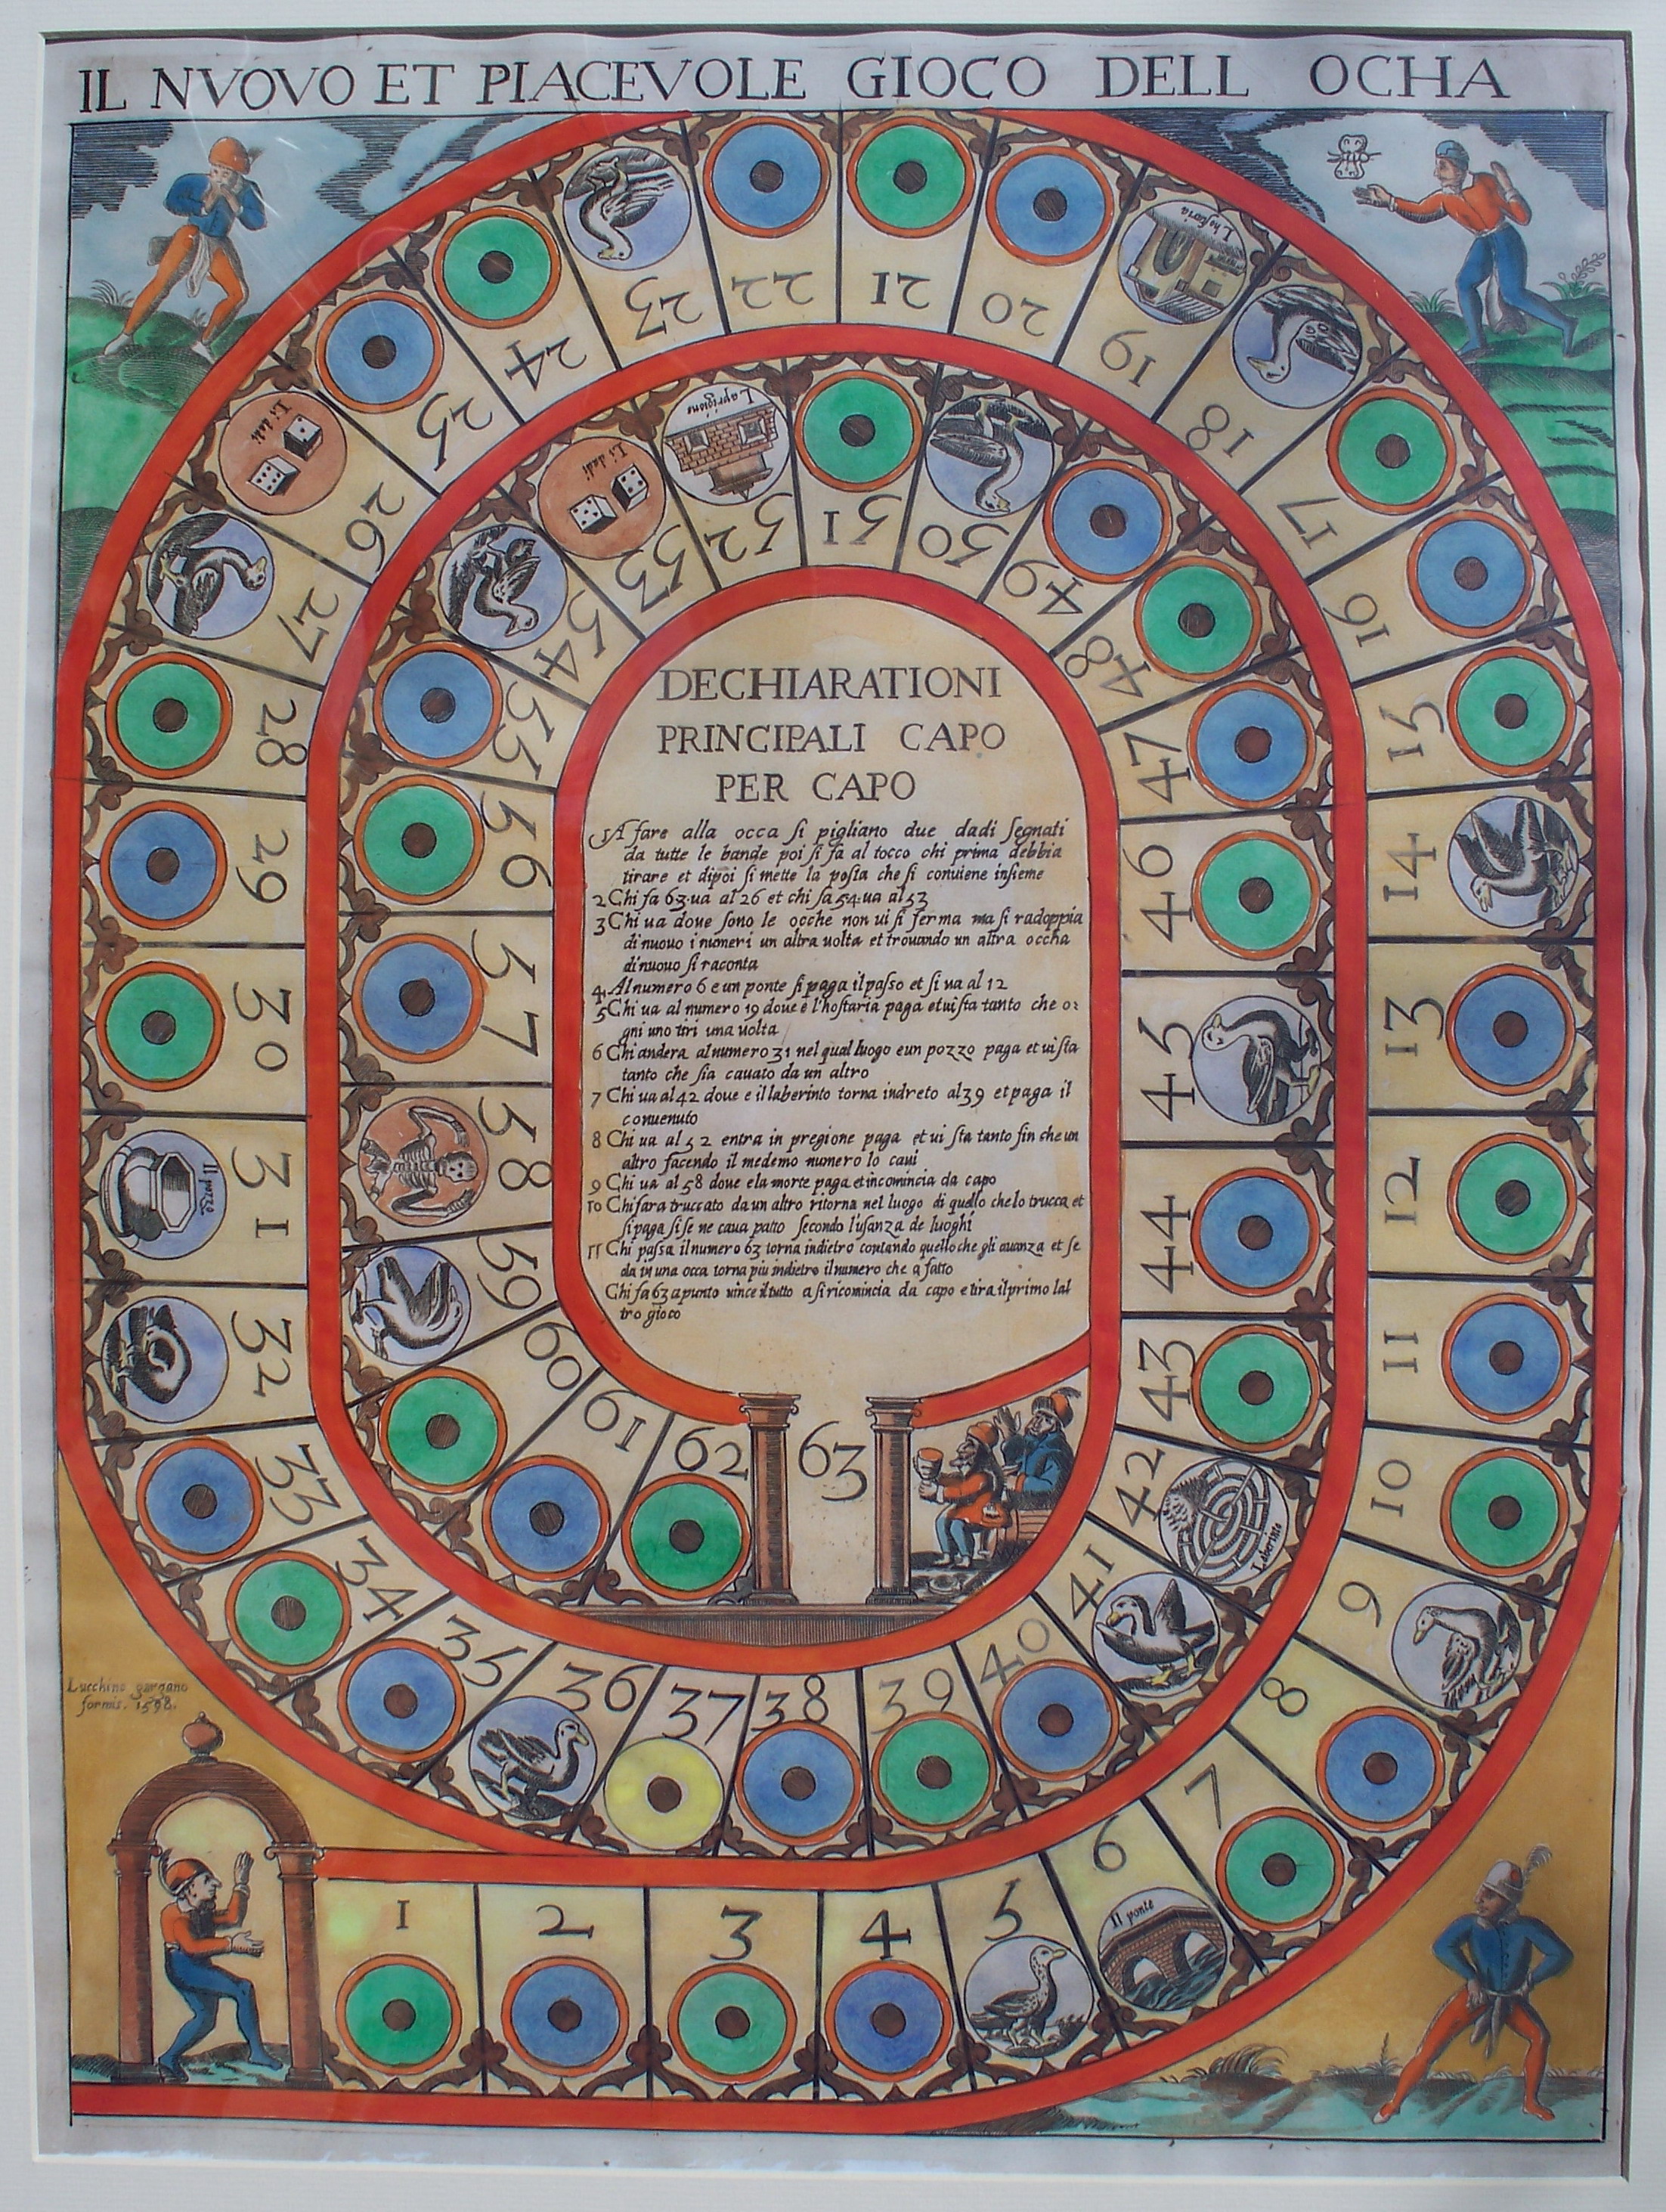 IL NVOVO ET PIACEVOLE GIOCO DELL OCHA
DECHIARATIONI
PRINCIPALI CAPO
PER CAPO
1 A fare alla occa si pigliano due dadi segnati
da tutte le bande poi si fa al tocco chi prima debbia
tirare et dipoi si mette la posta che si conuiene insieme
2 Chi fa 63 ua al 26 et chi fa 54 ua al 53
3 Chi ua doue sono le ocche non ui si ferma ma si radoppia
di nuouo i numeri un altra uolta et trouando un altra occha
di nuouo si raconta
4 Al numero 6 e un ponte si paga il passo et si ua al 12
5 Chi ua al numero 19 doue e l'hostaria paga et ui sta tanto che o=
gni uno tiri una uolta
6 Chi andera al numero 31 nel qual luogo e un pozzo paga et ui sta
tanto che sia cauato da un altro
7 Chi ua al 42 doue e il laberinto torna indreto al 39 et paga il
conuenuto
8 Chi ua al 52 entra in pregione paga et ui sta tanto fin che un
altro facendo il medemo numero lo caui
9 Chi ua al 58 doue e la morte paga et incomincia da capo
10 Chi sara truccato da un altro ritorna nel luogo di quello che lo trucca et
si paga si se ne caua patto secondo l'usanza de luoghi
11 Chi passa il numero 63 torna indietro contando quello che gli auanza et se
da in una occa torna piu indietro il numero che a fatto
Chi fa 63 apunto uince il tutto a si ricomincia da capo e tira il primo lal
tro gioco
Lucchino gargano
formis. 1598.
1
2
3
4
5
6
Il ponte
7
8
9
10
11
12
13
14
15
16
17
18
19
L'hostaria
20
21
22
23
24
25
26
Li dadi
27
28
29
30
31
Il pozzo
32
33
34
35
36
37
38
39
40
41
42
Laberinto
43
44
45
46
47
48
49
50
51
52
La prigione
53
Li dadi
54
55
56
57
58
59
60
61
62
63